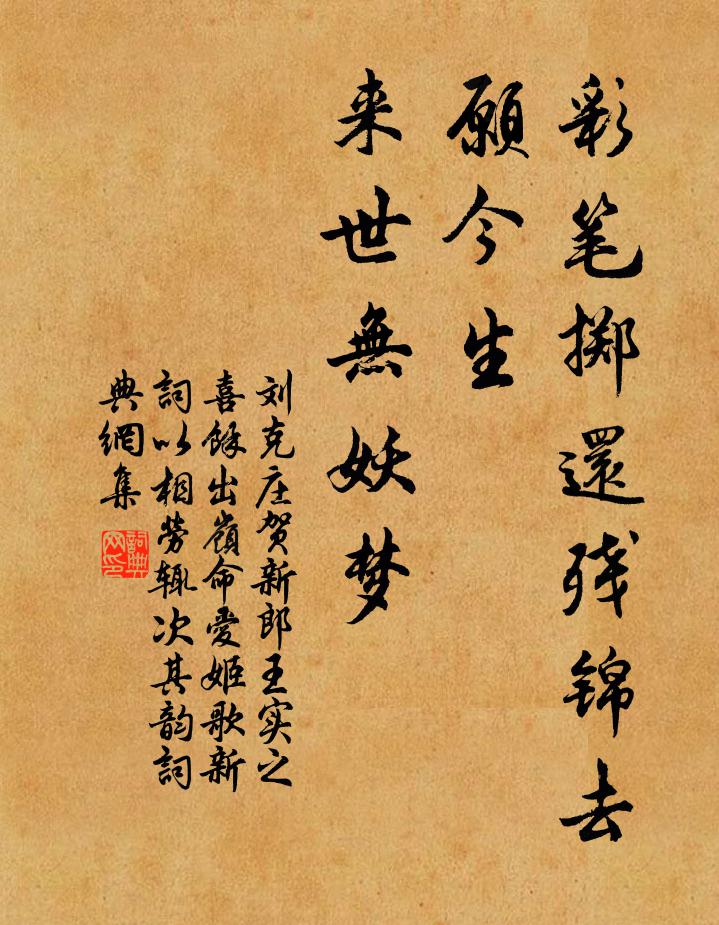 彩笔掷還残锦去
願今生
来世無妖梦
刘克庄贺新郎王实之
喜餘出嶺命愛姬歌新
詞以相勞辄次其韵詞
典網集
詞典
网印